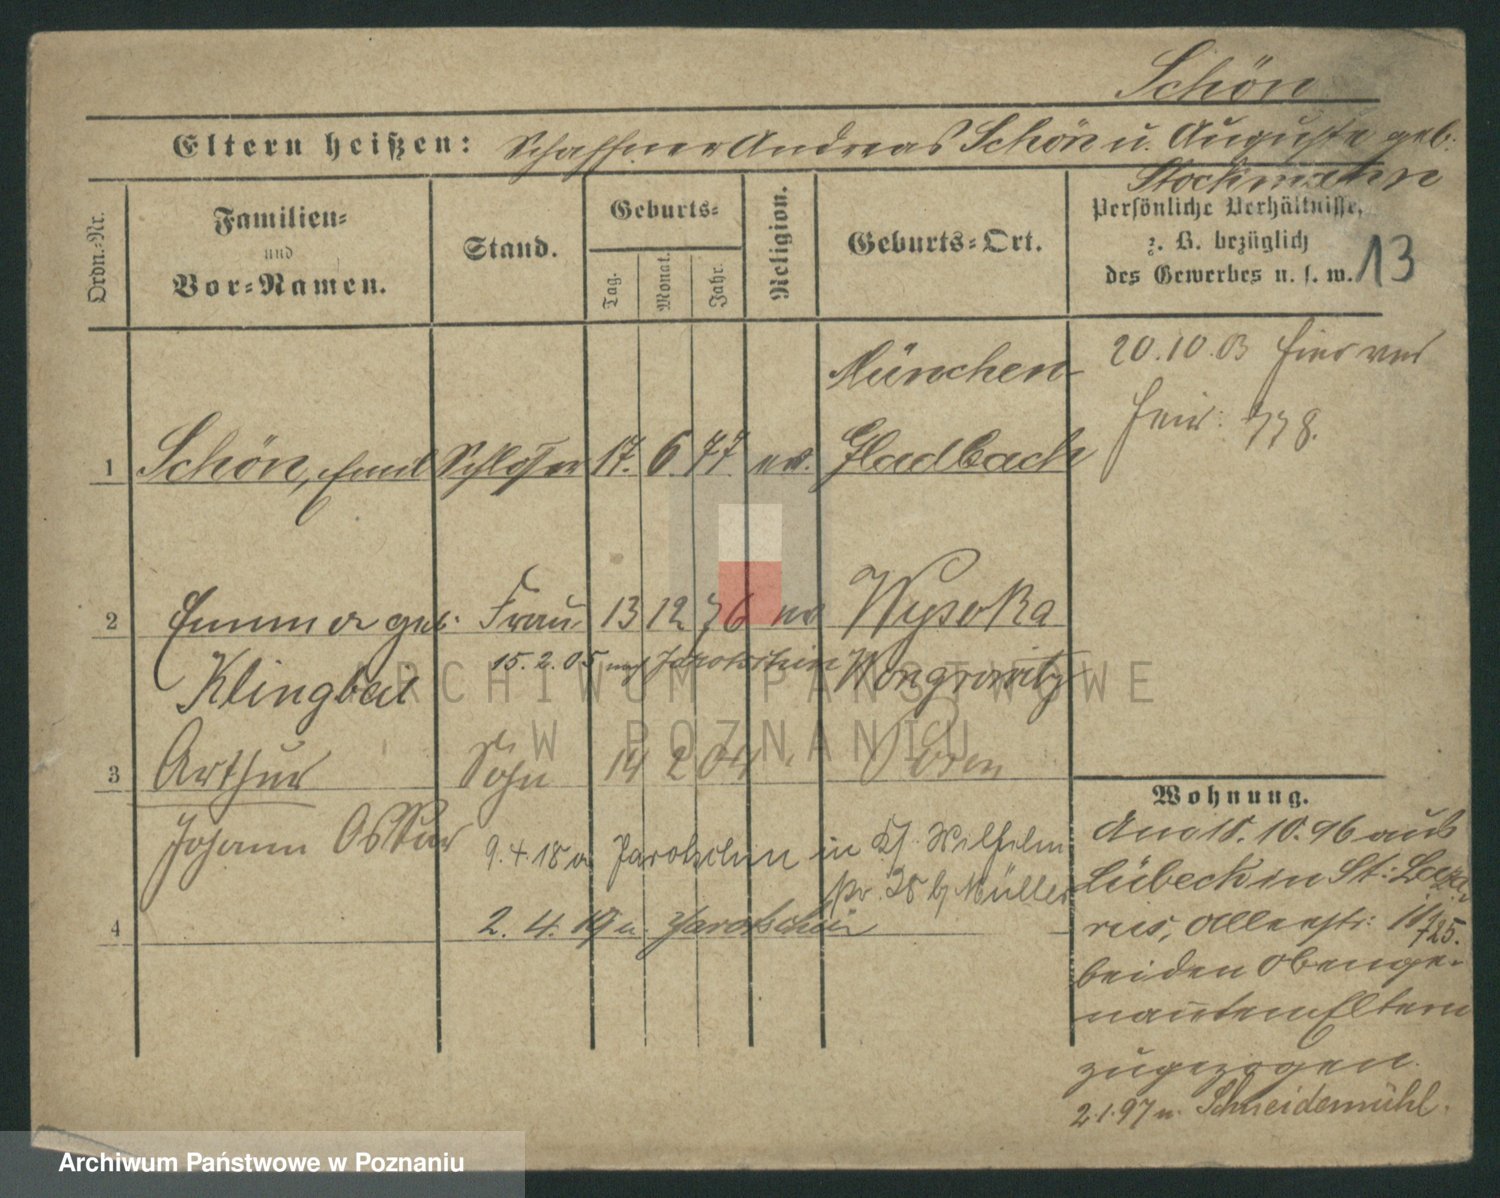 Schön
Eltern heißen: Schaffner Andreas Schön u. Auguste geb.
Stockmann
Ordn.-Nr.
Familien-
und
Vor-Namen.
Stand.
Geburts-
Tag.
Monat.
Jahr.
Religion.
Geburts-Ort.
Persönliche Verhältnisse,
z. B. bezüglich
des Gewerbes u. s. w.
13
20.10.03 hier ver
heir: 778.
München-
1 Schön, Emil Schlosser 17. 6. 77. ev. Gladbach
2 Emma geb. Frau 13 12 76 ev Wysoka
Klingbeil 15.2.05 nach Jarotschin Wongrowitz
3 Arthur Sohn 14 2 04 Posen
Johann Oskar
9.4.18 a Jarotschin in Kf. Wilhelm
str. 38 b/ Müller
4 2. 4. 19 n. Jarotschin
Wohnung.
Am 18.10.96 aus
Lübeck in St: Laza-
rus, Allerstr:
725.
bei den Obenge-
nannten Eltern
zugezogen.
2.1.97 n. Schneidemühl.
ARCHIWUM PAŃSTWOWE
W POZNANIU
Archiwum Państwowe w Poznaniu